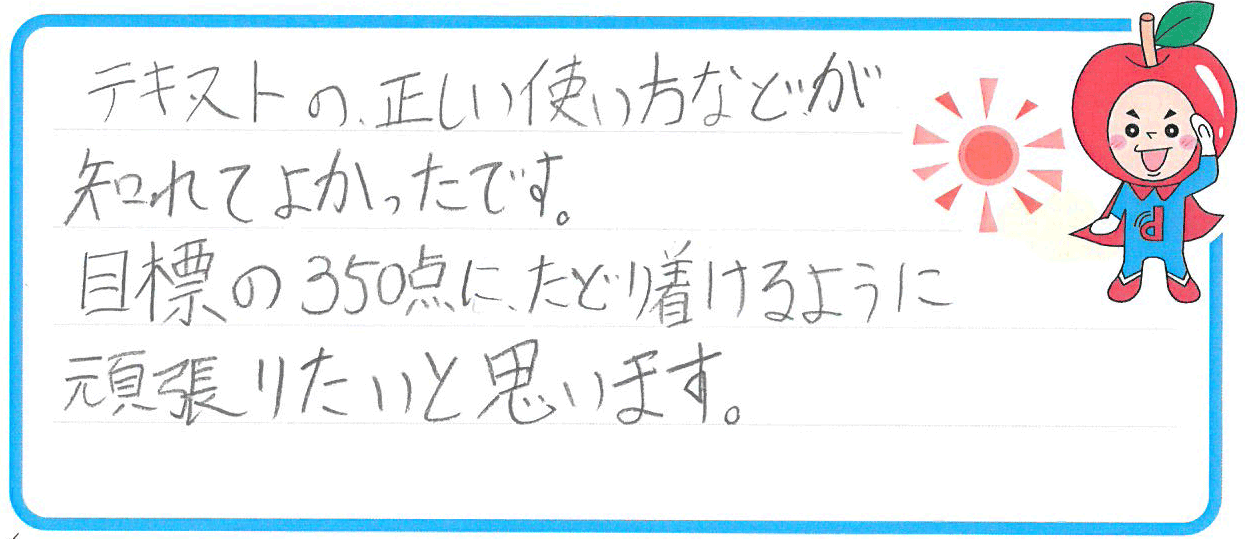 テキストの、正しい使い方などが
知れてよかったです。
目標の350点に、たどり着けるように
頑張りたいと思います。
d